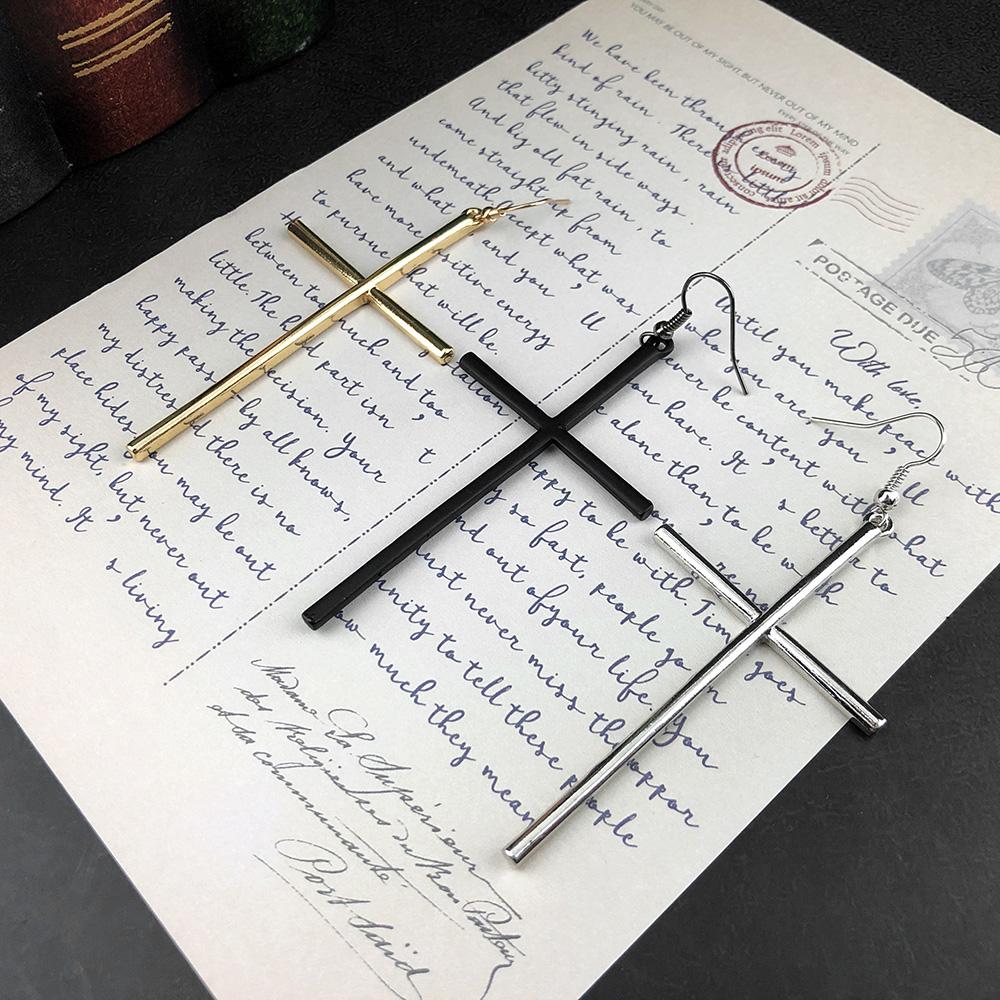 YOU MAY BE OUT OF MY SIGHT, BUT NEVER OUT OF MY MIND
We have been throu
kind of rain. There
bitty stinging rain, rain
that flew in side ways.
And big old fat rain, to
come straight up from
underneath. cept what was
and what and you'll
have more sitive energy
to pursue hat will be
between too much and too
little. The h d part isn't
making the ecision. Your
happy pass by all knows,
my distres d there is no
place hides. You may be out
of my sight, but never out
my mind. It's living
Until you make peace with
who you are, you'll
never be content with what
you have. It's better to
alone than to be w h
appy to be with. Time goes
so fast, people go in
nd out of your life. You
ust never miss the oppor
nity to tell these people
ow much they mean
With love,
POSTAGE DUE
Lorem
ipsum
Madame La Supérieure
des Religieuses du Bon Pasteur
et la communauté
Port Saïd